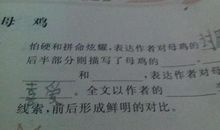 母 鸡
怕硬和拼命炫耀,表达作者对母鸡的
后半部分则描写了母鸡的
和 ,表达作者对母鸡的
喜爱。全文以作者的
线索,前后形成鲜明的对比。